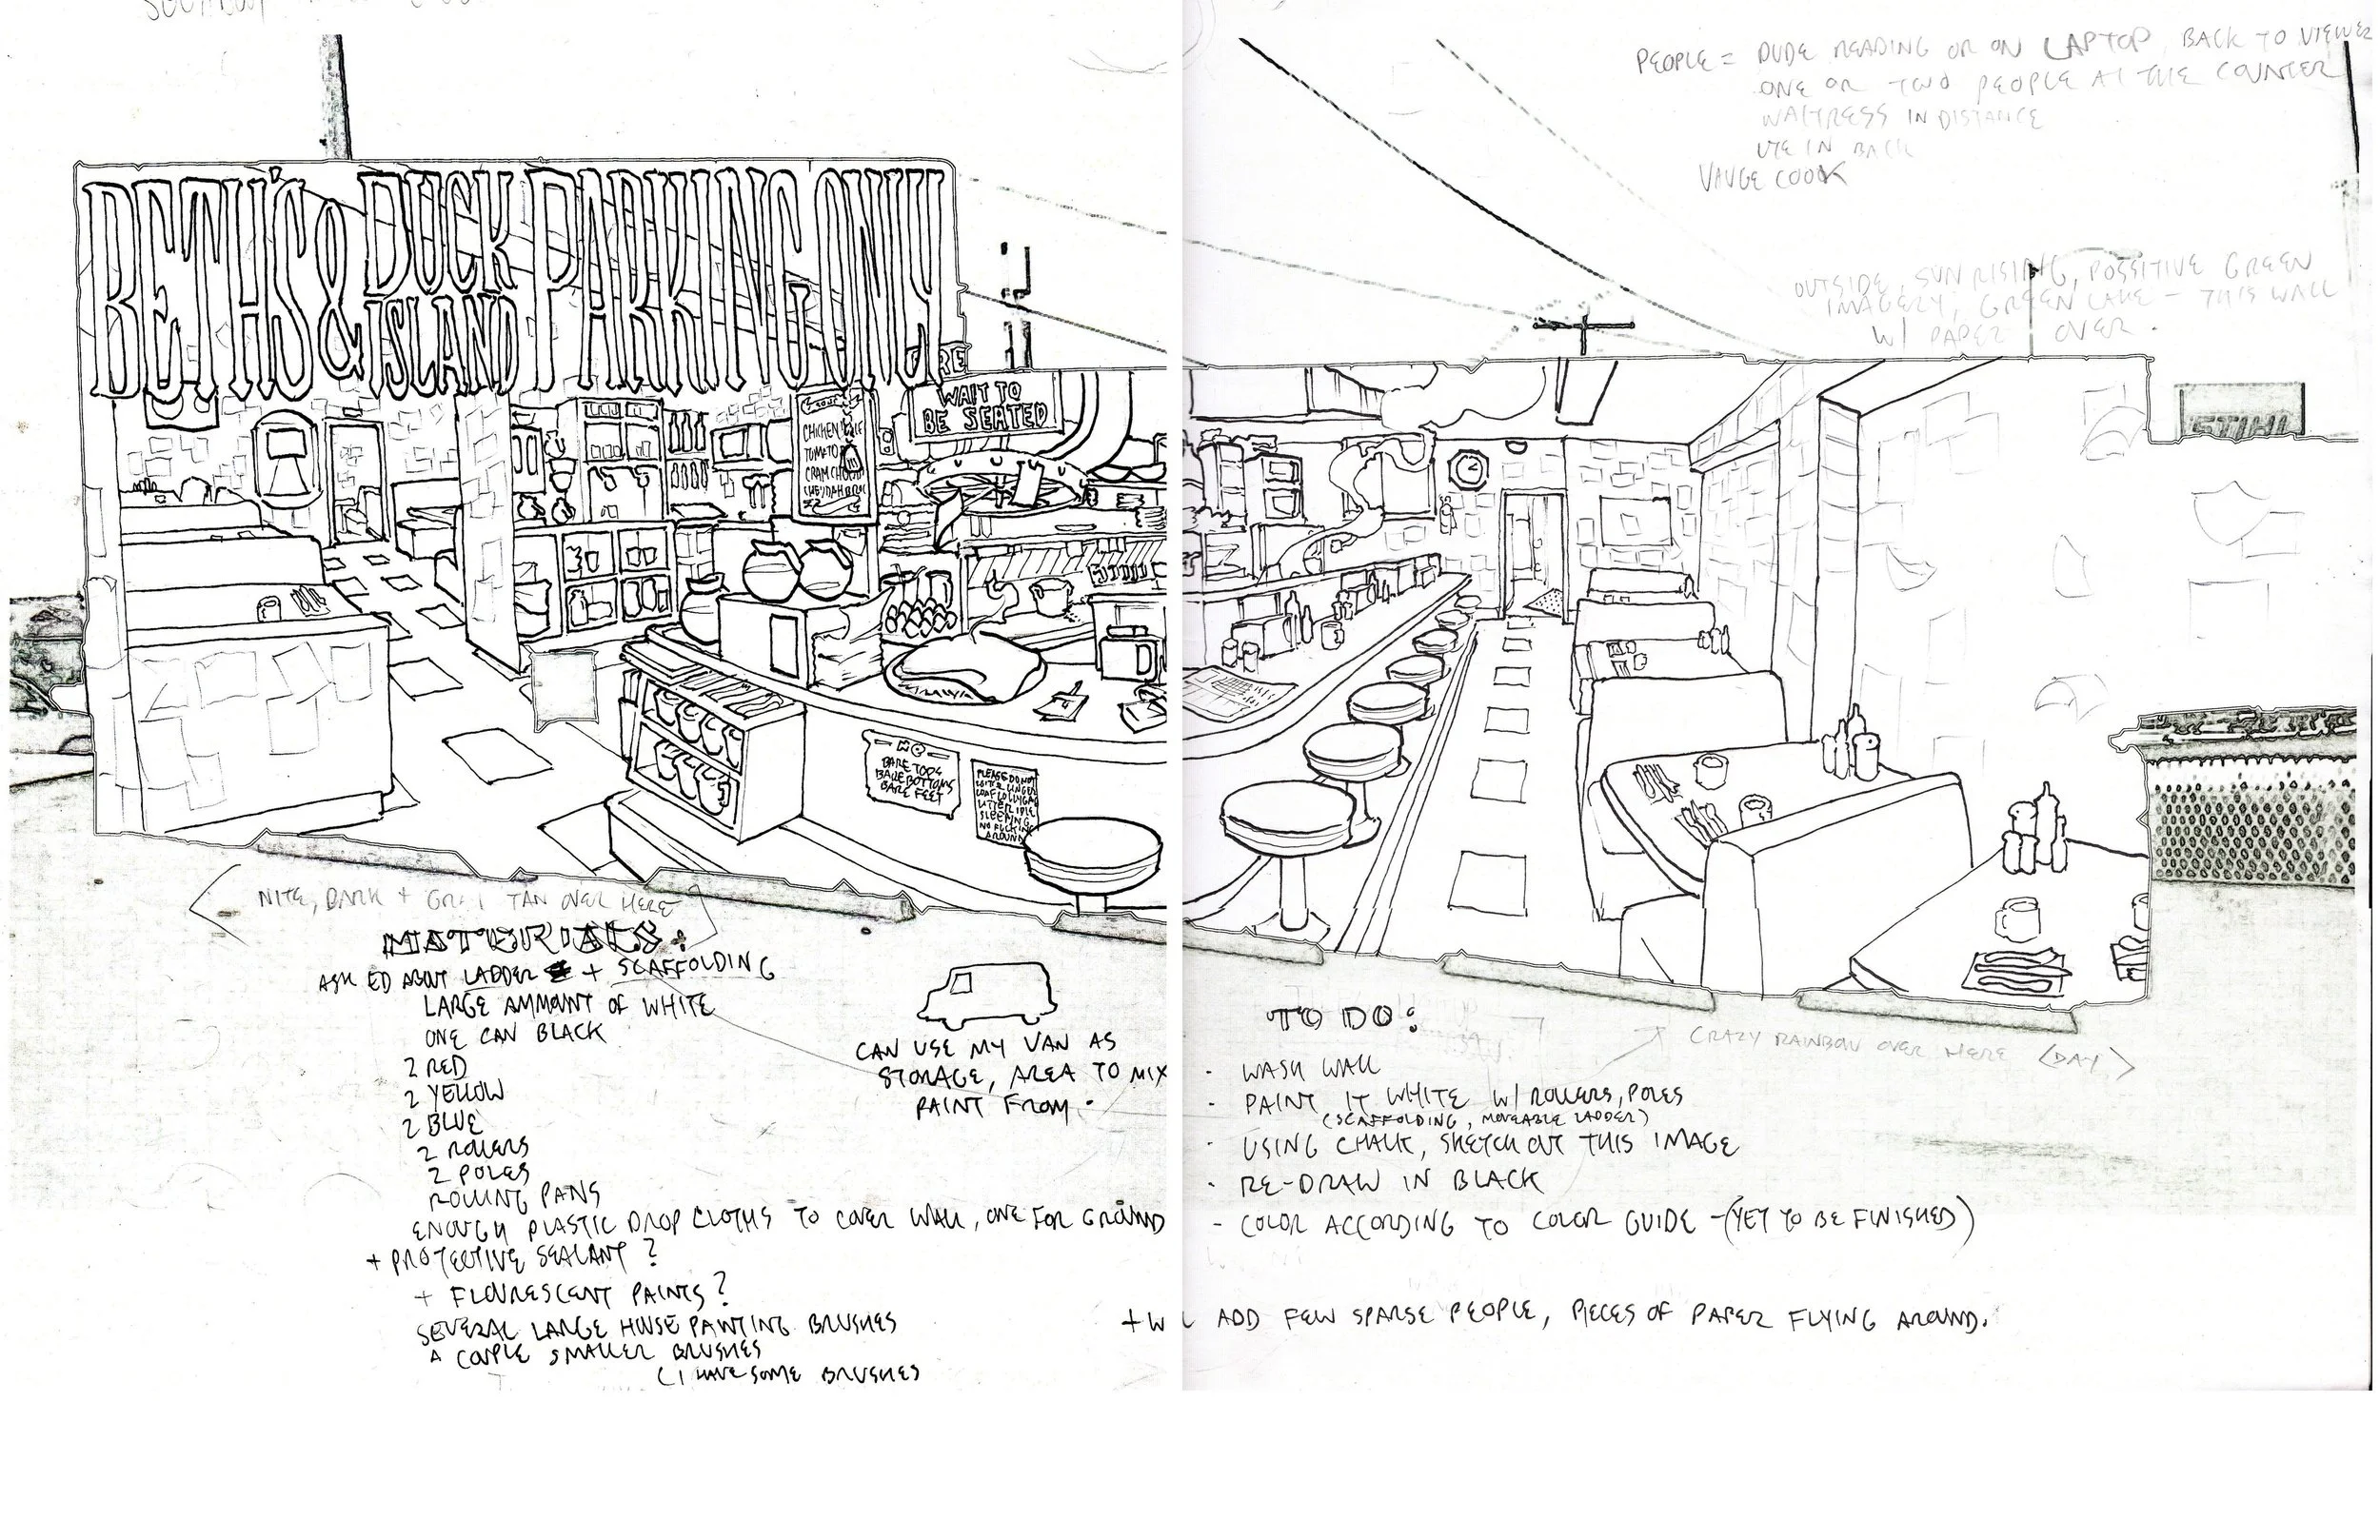 PEOPLE = DUDE READING OR ON LAPTOP, BACK TO VIEWER
ONE OR TWO PEOPLE AT THE COUNTER
WAITRESS IN DISTANCE
IN BACK
VAUGE COOK
OUTSIDE, SUN RISING, POSSITIVE GREEN
IMAGERY, GREEN LAKE - THIS WALL
W/ PAPER OVER.
BETH'S & DUCK ISLAND PARKING ONLY
WAIT TO
BE SEATED
SOUP
CHICKEN
TOMATO
CLAM CHOWD
STIHL
NO
BARE TOPS
BARE BOTTOMS
BARE FEET
PLEASE DO NOT
LOITER LINGER
LITTER IDLE
SLEEPING
NO FUCKING
AROUND
NITE, DARK + GREY TAN OVER HERE
MATERIALS:
ASK ED ABOUT LADDER + SCAFFOLDING
LARGE AMMOUNT OF WHITE
ONE CAN BLACK
2 RED
2 YELLOW
2 BLUE
2 ROLLERS
2 POLES
ROLLING PANS
ENOUGH PLASTIC DROP CLOTHS TO COVER WALL, ONE FOR GROUND
+ PROTECTIVE SEALANT?
+ FLOURESCENT PAINTS?
SEVERAL LARGE HOUSE PAINTING BRUSHES
A COUPLE SMALLER BRUSHES
(I HAVE SOME BRUSHES
CAN USE MY VAN AS
STORAGE, AREA TO MIX
PAINT FROM.
TO DO:
CRAZY RAINBOW OVER HERE (DAY)
- WASH WALL
- PAINT IT WHITE W/ ROLLERS, POLES
(SCAFFOLDING, MOVEABLE LADDER)
- USING CHALK, SKETCH OUT THIS IMAGE
- RE-DRAW IN BLACK
- COLOR ACCORDING TO COLOR GUIDE - (YET TO BE FINISHED)
+ W L ADD FEW SPARSE PEOPLE, PIECES OF PAPER FLYING AROUND.